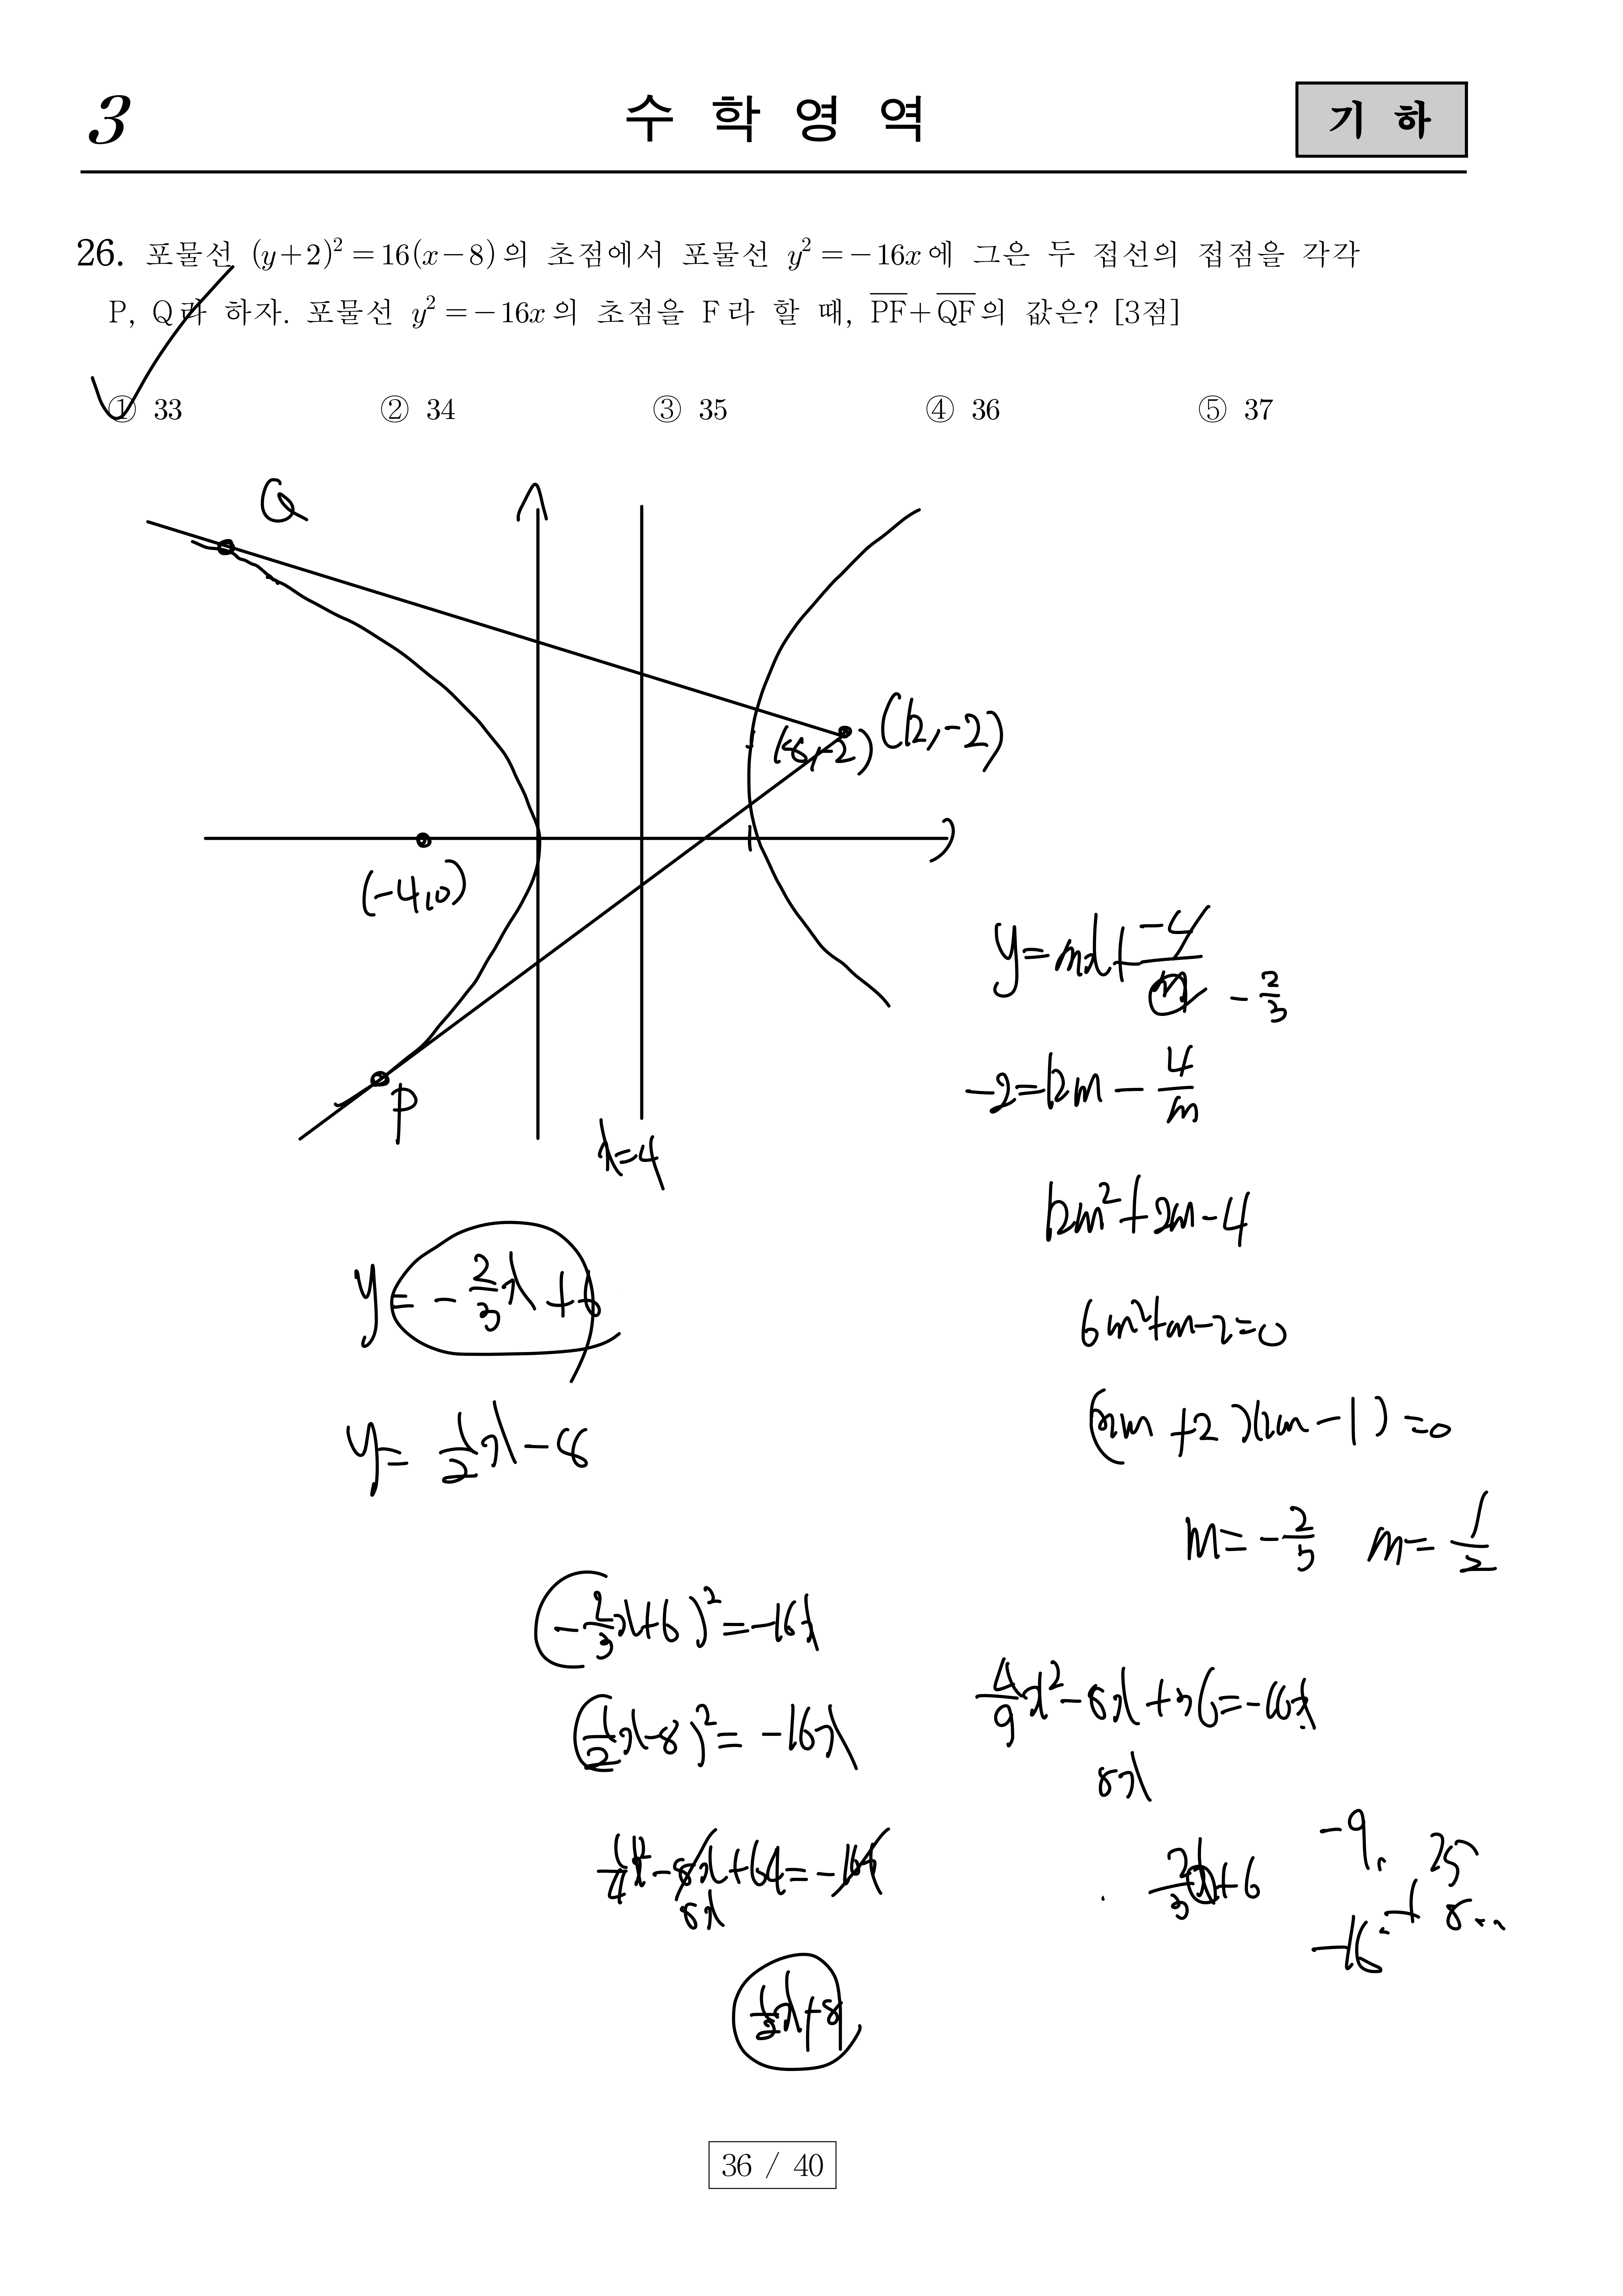 3
수 학 영 역
기 하
26. 포물선 (y+2)²=16(x-8)의 초점에서 포물선 y²=-16x에 그은 두 접선의 접점을 각각
P, Q라 하자. 포물선 y²=-16x의 초점을 F라 할 때, PF+QF의 값은? [3점]
① 33 ② 34 ③ 35 ④ 36 ⑤ 37
Q
(8,-2) (12,-2)
(-4,0)
P
x=4
y=mx+-4/m
-2/3
-2=12m-4/m
12m²+2m-4
6m²+m-2=0
(3m+2)(2m-1)=0
m=-2/3 m=1/2
y=-2/3x+6
y=1/2x-8
(-2/3x+6)²=-16x
(1/2x-8)²=-16x
4/9x²-8x+36=-16x
8x
1/4x²-8x+64=-16x
8x
2/3x+6
-9, 25
-16 + 8
1/2x+8
36 / 40